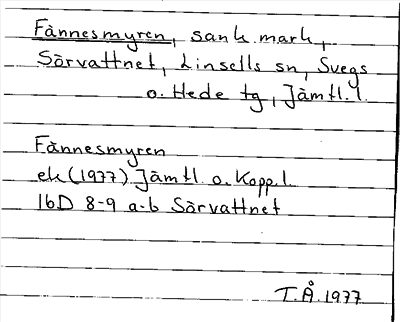 Fännesmyren, sank mark,
Särvattnet, Linsells sn, Svegs
o. Hede tg, Jämtl. l.
Fännesmyren
ek (1977) Jämtl o. Kopp. l.
16D 8-9 a-b Särvattnet
T.Å. 1977